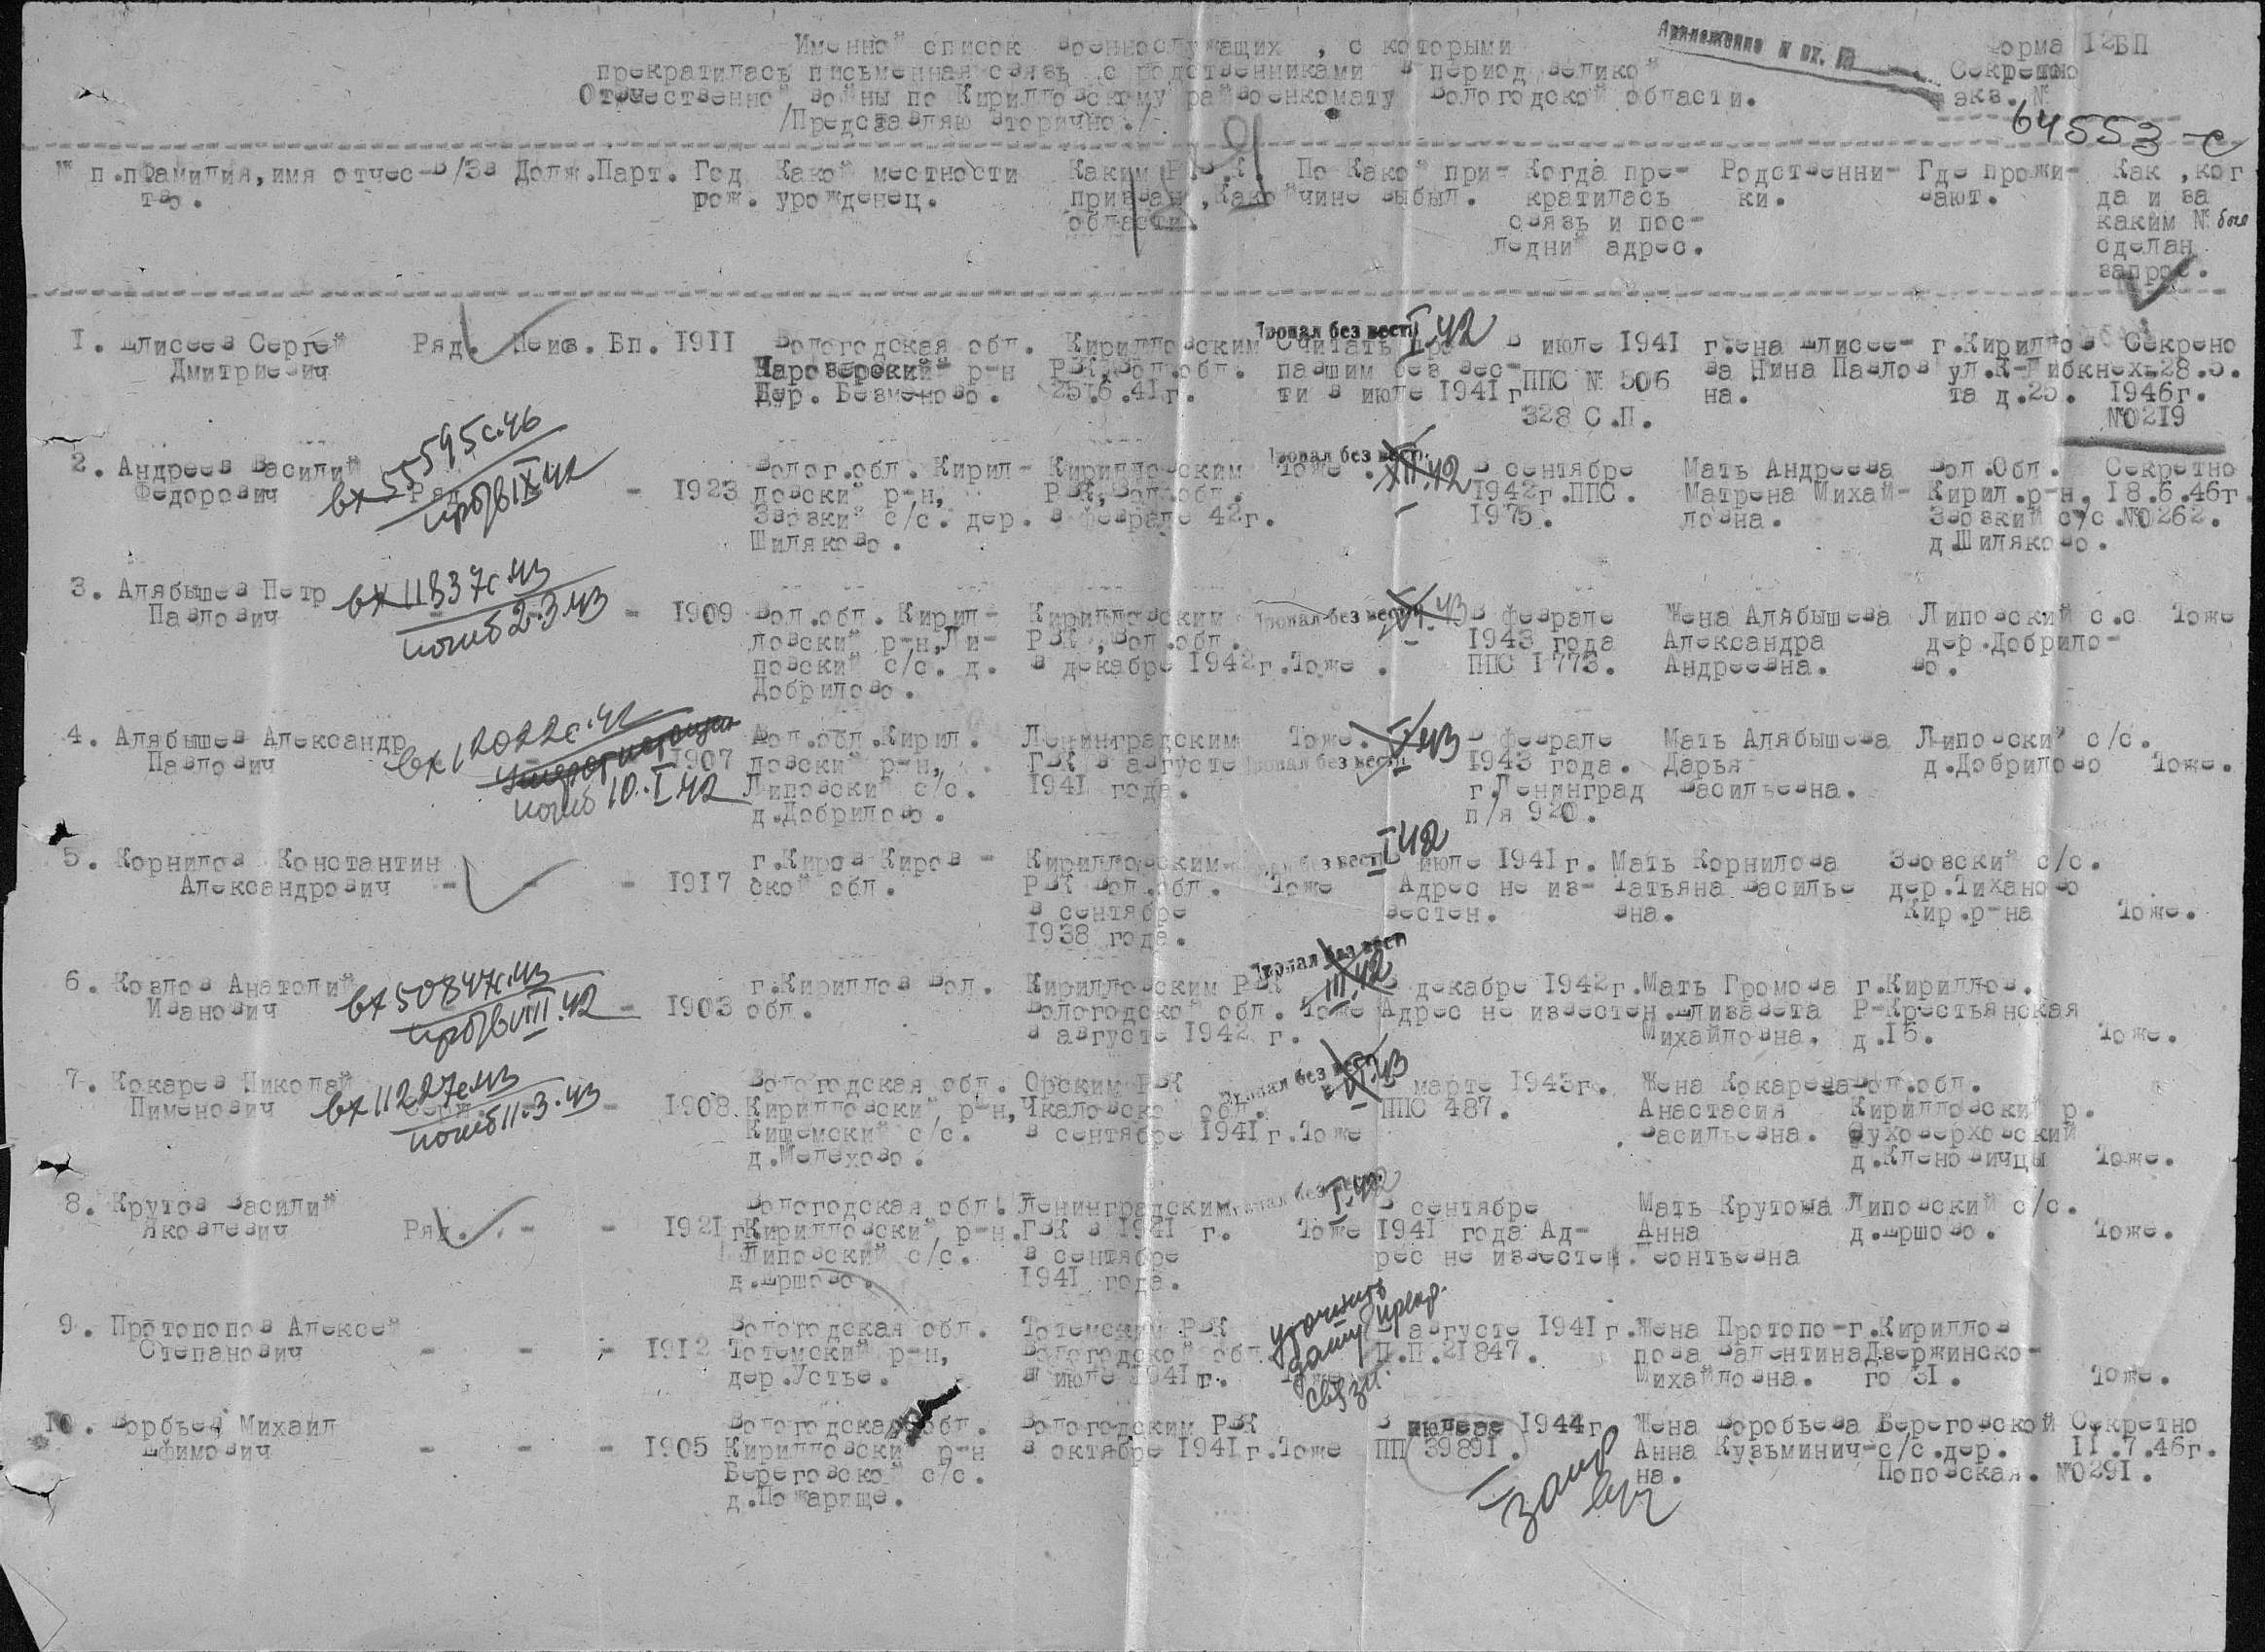 Именной список военнослужащих , с которыми
прекратилась письменная связь с родственниками в период Великой
Отечественной войны по Кирилловскому райвоенкомату Вологодской области.
/Представляю вторично./
Приложение к вх. №
Форма 12БП
Секретно
экз. №
64553 с
№ п.п Фамилия, имя отчес-тво. В/Зв Долж. Парт. Год рож. Какой местности урожденец. Каким Р.В.К. призван, Какой области. По Какой причине выбыл. Когда прекратилась связь и последний адрес. Родственники. Где проживают. Как ,когда и за каким № был сделан запрос.
1. Елисеев Сергей Ряд. Неиз. Бп. 1911 Вологодская обл. Кирилловским Считать про- В июле 1941 г. Жена Елисее- г.Кириллов Секрено
Дмитриевич Чарозерский р-н РВК, Вол.обл. павшим без вес- ППС № 506 ва Нина Павлов ул.К-Либкнех- 28.5.
Дер. Безменово. 25.6.41г. ти в июле 1941 г на. та д.25. 1946г.
328 С.П. №0219
Пропал без вести I.42
2. Андреев Василий Волог.обл. Кирил- Кирилловским Тоже . В сентябре Мать Андреева Вол.Обл. Секретно
Федорович Ряд. - 1923 ловский р-н, РВК, Вол.обл. 1942г.ППС. Матрена Михай- Кирил.р-н, 18.6.46г.
Звозкий с/с. дер. в феврале 42г. - 1975. ловна. Звозкий с/с. №0262.
Шиляково. д.Шиляково.
вх 55595с.46
проп IX 42
Пропал без вести XII.42
3. Алябышев Петр
Павлович - 1909 Вол.обл. Кирил- Кирилловским В феврале Жена Алябышева Липовский с.с Тоже
ловский р-н,Ли- РВК ,Вол.обл. - 1943 года Александра дер.Добрило-
повский с/с. д. в декабре 1942г. Тоже . ППС 1773. Андреевна. во.
Добрилово.
вх 11837с.43
погиб 2.3.43
Пропал без вести VI.43
4. Алябышев Александр Вол.обл.Кирил. Ленинградским Тоже. В феврале Мать Алябышева Липовский с/с.
Павлович 1907 ловский р-н, ГВК в августе 1943 года. Дарья д.Добрилово Тоже.
Липовский с/с. 1941 года. г.Ленинград Васильевна.
д.Добрилово. п/я 920.
вх 12022с.42
погиб 10.I 42
Пропал без вести V 43
5. Корнилов Константин г.Киров Киров - Кирилловским В июле 1941г. Мать Корнилова Звозский с/с.
Александрович - - - 1917 ской обл. РВК Вол.обл. Тоже Адрес не из- Татьяна Василье дер.Тиханово
в сентябре вестен. вна. Кир.р-на Тоже.
1938 года.
без вести I 42
6. Козлов Анатолий г.Кириллов Вол. Кирилловским РВК В декабре 1942г. Мать Громова г.Кириллов.
Иванович - 1903 обл. Вологодской обл. Тоже Адрес не известен. Елизавета Р-Крестьянская
в августе 1942 г. Михайловна. д.15. Тоже.
вх 50847с.43
проп в VIII.42
Пропал без вести III.42
7. Кокарев Николай Вологодская обл. Орским РВК марте 1943г. Жена Кокарева Вол.обл.
Пименович - 1908 Кирилловский р-н, Чкаловской обл. ППС 487. Анастасия Кирилловский р.
Кишемский с/с. в сентябре 1941г. Тоже Васильевна. Суховерховский
д.Мелехово. д.Кленовичцы Тоже.
вх 11227с.43
погиб 11.3.43
Пропал без вести VI.43
8. Крутов Василий Вологодская обл. Ленинградским В сентябре Мать Крутова Липовский с/с.
Яковлевич Ряд. - - 1921г Кирилловский р-н. ГВК в 1941 г. Тоже 1941 года Ад- Анна д.Ершово. Тоже.
Липовский с/с. в сентябре рес не известен. Леонтьевна
д.Ершово. 1941 года.
I.42
9. Протопопов Алексей Вологодская обл. Тотемским РВК В августе 1941г. Жена Протопо- г.Кириллов
Степанович - - - 1912 Тотемский р-н, Вологодской обл. П.П.21847. пова Валентина Дзержинско-
дер.Устье. в июле 1941г. Михайловна. го 31. Тоже.
уточнить
дату прекр.
связи.
10. Ворбьев Михаил Вологодская обл. Вологодским РВК В 1944г Жена Воробьева Береговской Секретно
Ефимович - - - 1905 Кирилловский р-н в октябре 1941г. Тоже ПП 39891. Анна Кузьминич- с/с.дер. 11.7.46г.
Береговской с/с. на. Поповская. №0291.
д.Пожарище.
Запр